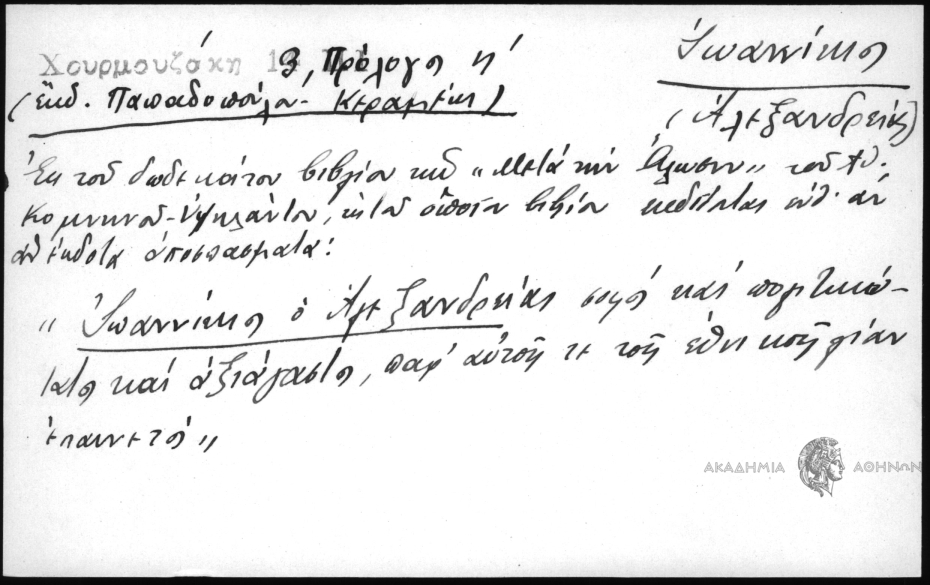 Χουρμουζάκη 13, Πρόλογος η΄
(ἔκδ. Παπαδοπούλου - Κεραμέως)
Ἰωαννίκιος
(Ἀλεξανδρείας)
Ἐκ τοῦ δωδεκάτου βιβλίου τῶν "Μετὰ τὴν Ἅλωσιν" τοῦ Ἀθ.
Κομνηνοῦ-Ὑψηλάντου, ἐκ τοῦ ὁποίου βιβλίου
ἀνέκδοτα ἀποσπάσματα:
"Ἰωαννίκιος ὁ Ἀλεξανδρείας σοφὸς καὶ πολιτικώ-
τατος καὶ ἀξιάγαστος, παρ' αὐτοῖς τε τοῖς ἐθνικοῖς λίαν
ἐπαινετός"
ΑΚΑΔΗΜΙΑ ΑΘΗΝΩΝ